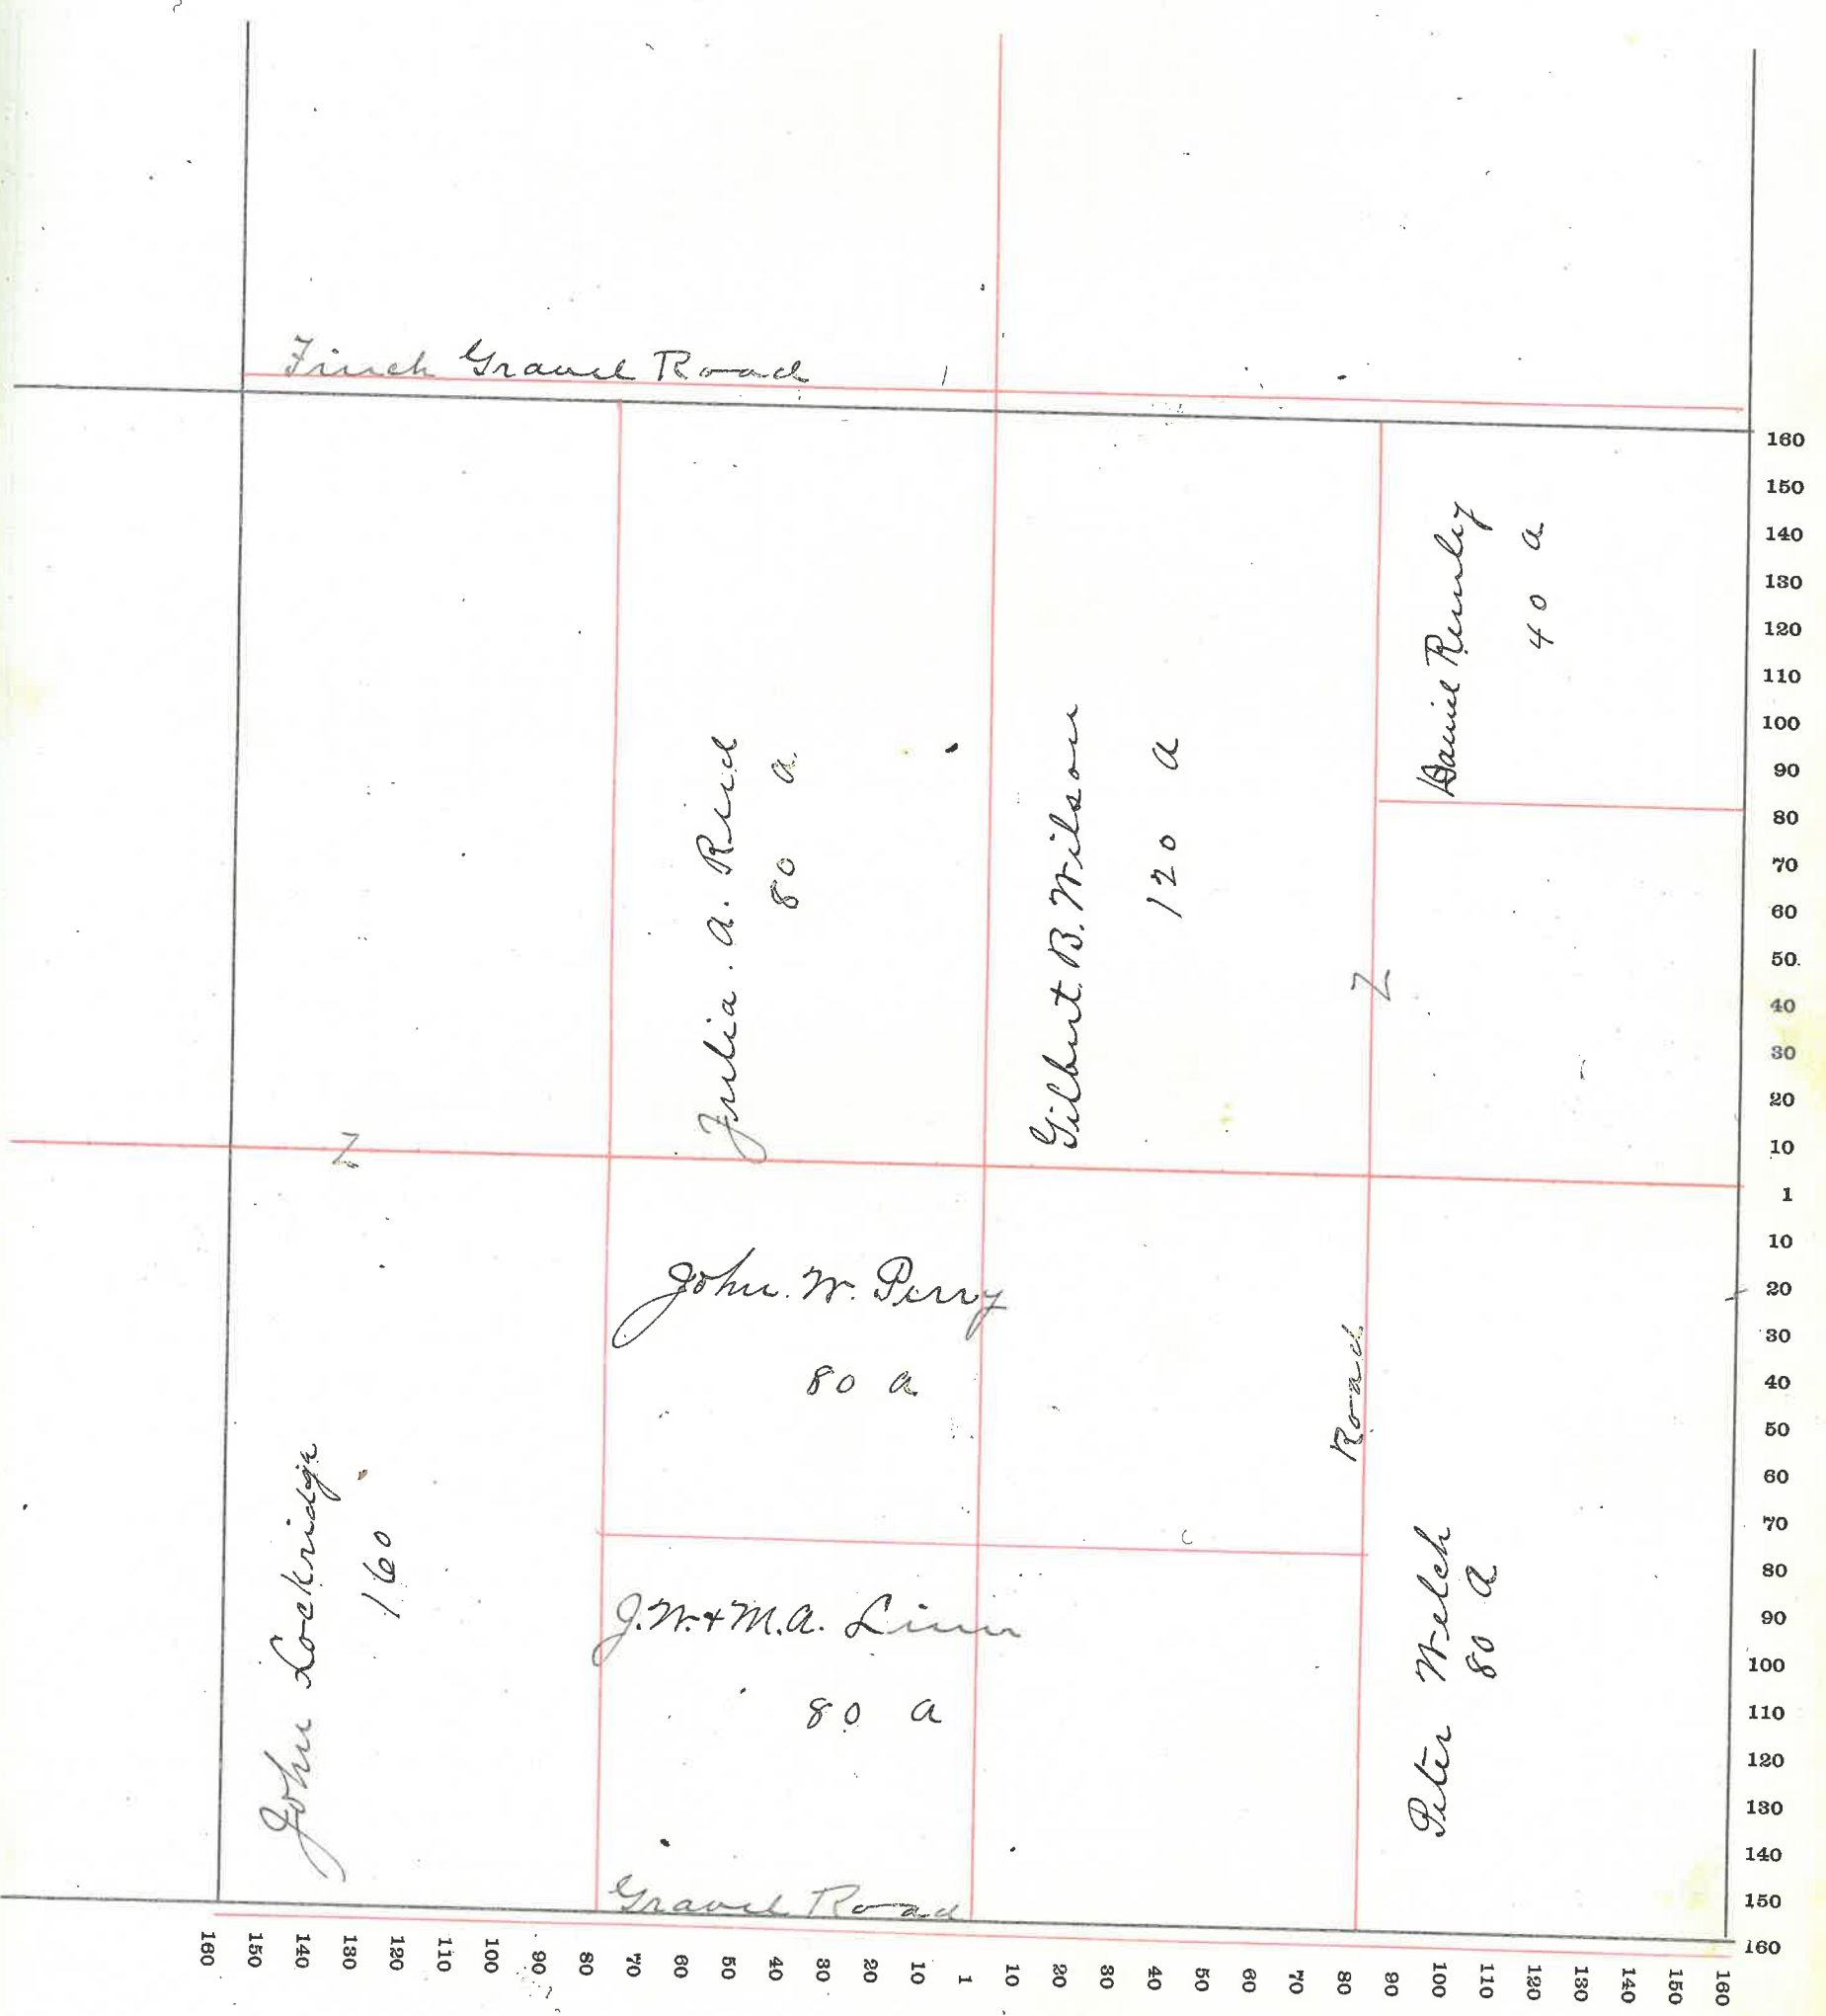 Finch Gravel Road
Julia. A. Reid
80 a.
Gilbert. B. Wilson
120 a
Daniel Remley
40 a
John. W. Perry
80 a
Road
John Lockridge
160
J. W. + M. A. Linn
80 a
Peter Welch
80 a
Gravel Road
160
150
140
130
120
110
100
90
80
70
60
50
40
30
20
10
1
10
20
30
40
50
60
70
80
90
100
110
120
130
140
150
160
160 150 140 130 120 110 100 90 80 70 60 50 40 30 20 10 1 10 20 30 40 50 60 70 80 90 100 110 120 130 140 150 160